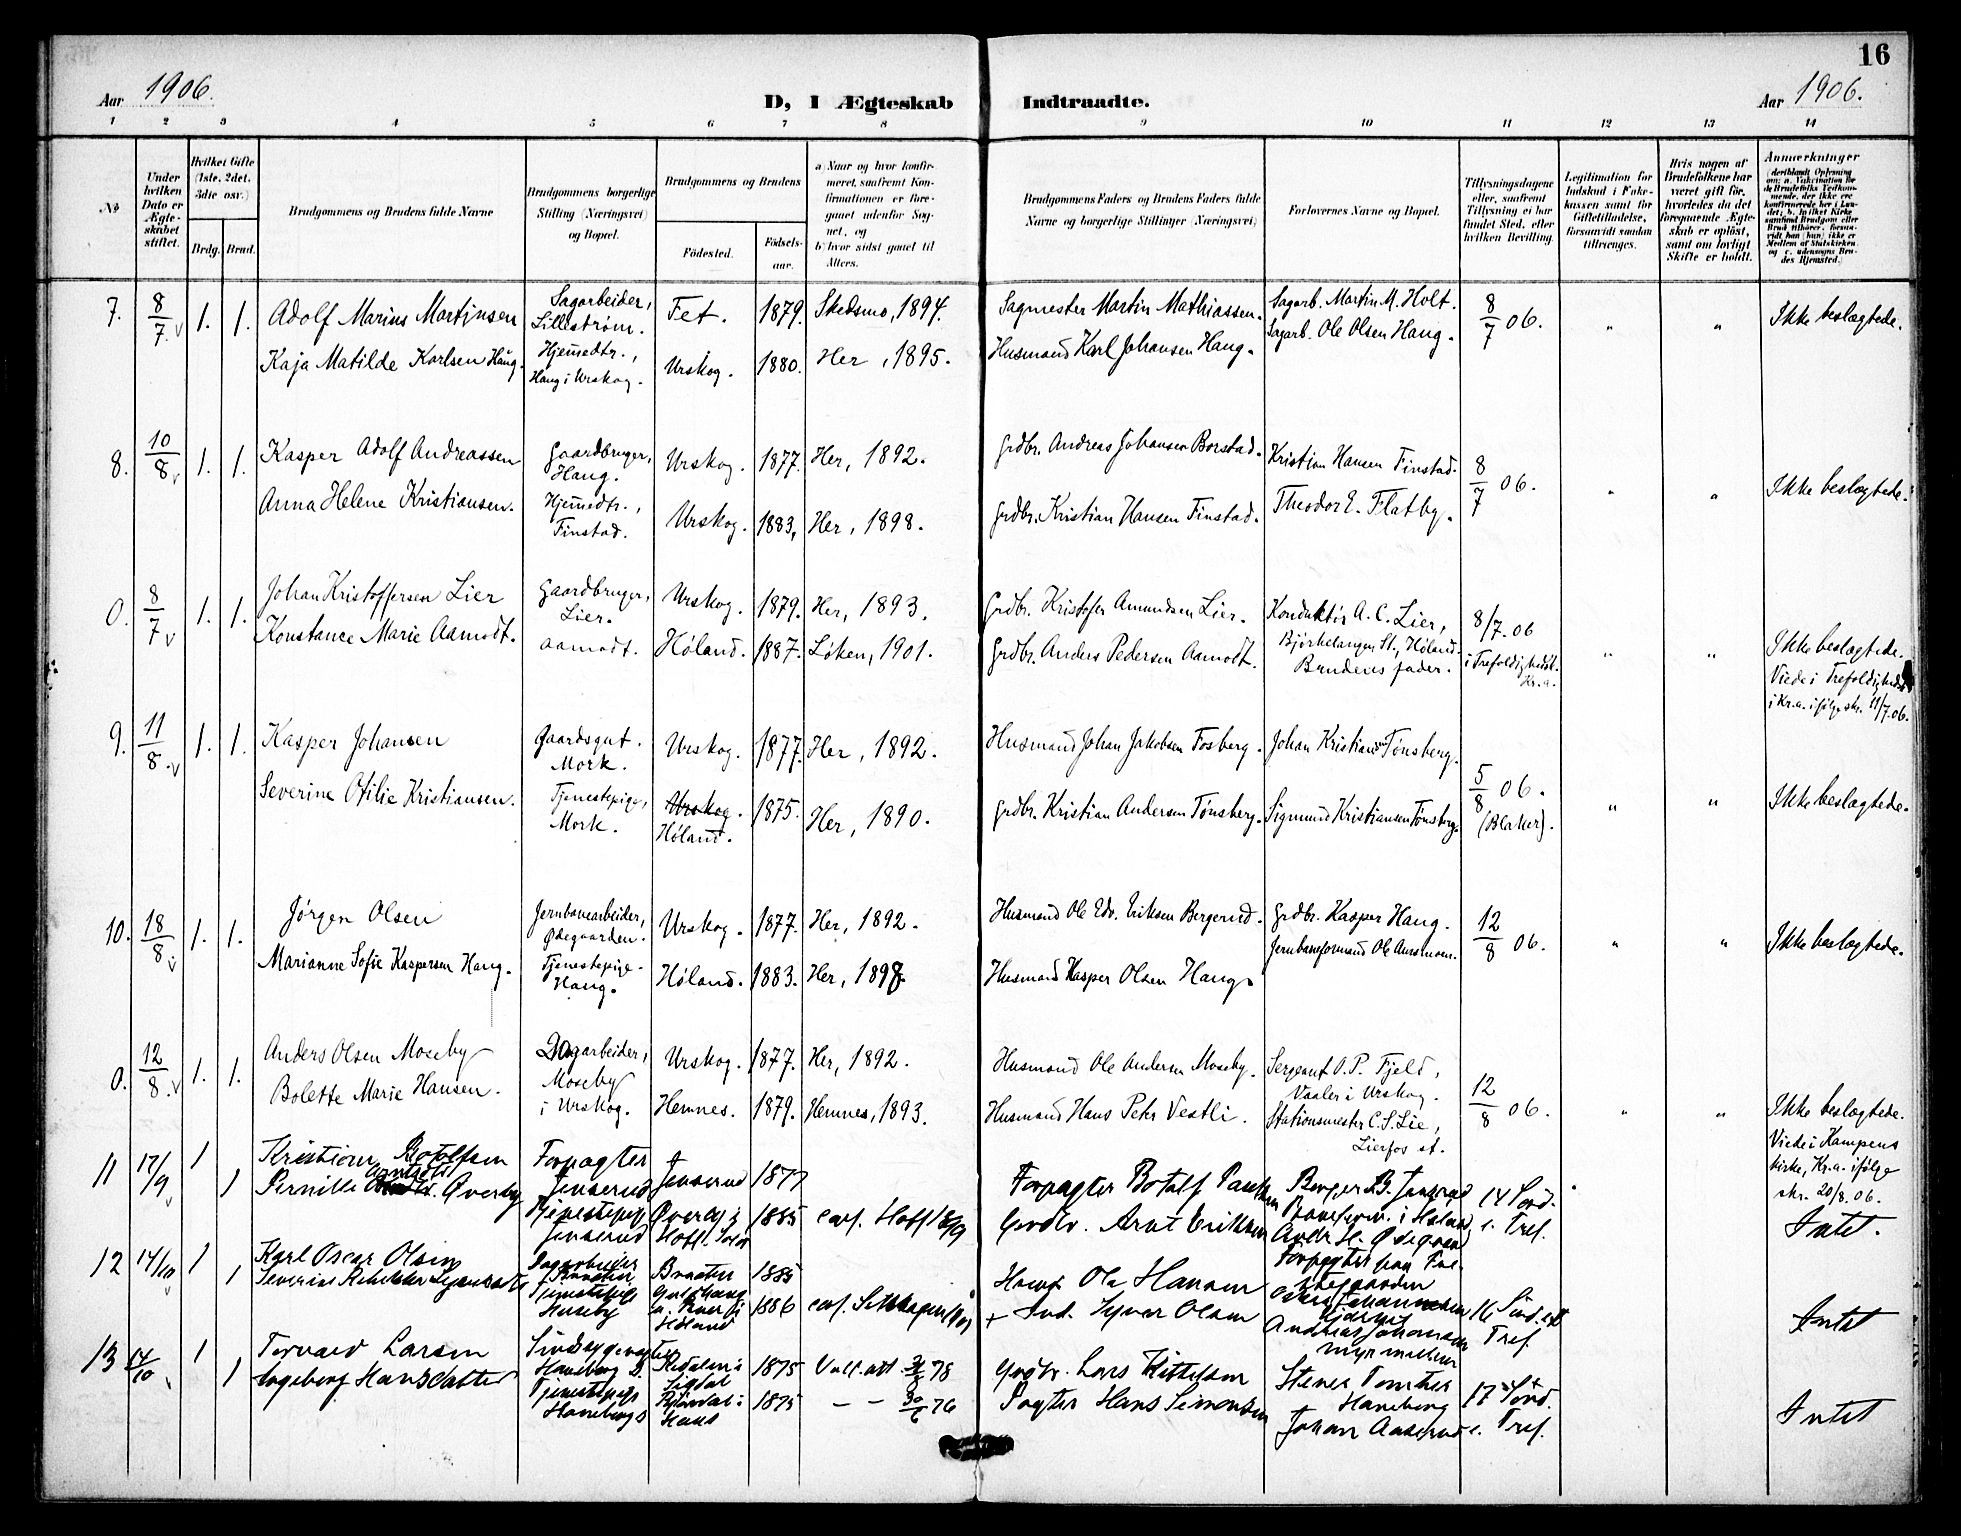 16
Aar 1906.
D, I Ægteskab Indtraadte.
Aar 1906.
1 2 3 4 5 6 7 8 9 10 11 12 13 14
No
Under hvilken Dato er Ægteskabet stiftet.
Hvilket Gifte (1ste, 2det, 3die osv.)
Brdg. Brud.
Brudgommens og Brudens fulde Navne
Brudgommens borgerlige Stilling (Næringsvei) og Bopæl.
Brudgommens og Brudens
Fødested.
Fødselsaar.
a) Naar og hvor konfirmeret, saafremt Konfirmationen er foregaaet udenfor Sognet, og
b) hvor sidst gaaet til Alters.
Brudgommens Faders og Brudens Faders fulde Navne og borgerlige Stillinger (Næringsvei)
Forlovernes Navne og Bopæl.
Tillysningsdagene eller, saafremt Tillysning ei har fundet Sted, efter hvilken Bevilling.
Legitimation for Indskud i Enkekassen samt for Giftetilladelse, forsaavidt saadan tiltrænges.
Hvis nogen af Brudefolkene har været gift før, hvorledes da det foregaaende Ægteskab er opløst, samt om lovligt Skifte er holdt.
Anmærkninger
7. 8/7 1. 1. Adolf Marius Martinsen Sagarbeider, Lillestrøm. Fet. 1879. Skedsmo, 1894. Sagmester Martin Mathiassen. Sagarb. Martin M. Holt. 8/7 06. " " Ikke beslægtede.
Kaja Matilde Karlsen Haug. Hjemmedtr., Haug i Urskog. Urskog. 1880. Her, 1895. Husmand Karl Johansen Haug. Sagarb. Ole Olsen Haug.
8. 10/8 1. 1. Kasper Adolf Andreassen Gaardbruger, Haug. Urskog. 1877. Her, 1892. Grdbr. Andreas Johansen Borstad. Kristian Hansen Finstad. 8/7 06. " " Ikke beslægtede.
Anna Helene Kristiansen. Hjemmedtr., Finstad. Urskog. 1883, Her, 1898. Grdbr. Kristian Hansen Finstad. Theodor E. Flatby.
0. 8/7 1. 1. Johan Kristoffersen Lier Gaardbruger, Lier. Urskog. 1879. Her, 1893. Grdbr. Kristofer Amundsen Lier. Konduktør A. C. Lier, Bjørkelangen St., Høland. 8/7. 06 i Trefoldighedsk. Kr.a. " " Ikke beslægtede.
Konstance Marie Aamodt. Aamodt. Høland. 1887. Løken, 1901. Grdbr. Anders Pedersen Aamodt. Brudens fader. Viede i Trefoldigheds i Kr.a. ifølge skr. 11/7.06.
9. 11/8 1. 1. Kasper Johansen Gaardsgut. Mork. Urskog. 1877. Her, 1892. Husmand Johan Jakobsen Fosberg. Johan Kristiansen Tønsberg. 5/8 06. (Blaker). " " Ikke beslægtede.
Severine Otilie Kristiansen. Tjenestepige, Mork. Urskog. Høland. 1875. Her, 1890. Grdbr. Kristian Andersen Tønsberg. Sigmund Kristiansen Tønsberg.
10. 18/8 1. 1. Jørgen Olsen Jernbanearbeider, Ødegaarden. Urskog. 1877. Her, 1892. Husmand Ole Edv. Eriksen Bergerud. Grdbr. Kasper Haug. 12/8 06. " " Ikke beslægtede.
Marianne Sofie Kaspersen Haug. Tjenestepige. Haug. Høland. 1883. Her, 1898. Husmand Kasper Olsen Haug. Jernbaneformand Ole Aursmoen.
0. 12/8 1. 1. Anders Olsen Moseby Dagarbeider, Moseby i Urskog. Urskog. 1877. Her, 1892. Husmand Ole Andersen Moseby. Sergeant O. P. Fjeld, Vaaler i Urskog. 12/8 06. " " Ikke beslægtede.
Bolette Marie Hansen. Hemnes. 1879. Hemnes, 1893. Husmand Hans Peter Vestli. Stationsmester C. S. Lie, Lierfos st. Viede i Kampens kirke, Kr.a. ifølge skr. 20/8.06.
11 17/9 1 Kristian Botolfsen Forpagter Jenserud Jenserud 1877 Forpagter Botolf Paulsen Berger B. Jenserud 14 Sönd. e. Tref. Intet.
1 Pernille Arntsdtr. Øverby Tjenestepige Jenserud Øverby i Hoff 1885 conf. Hoff Grdbr. Arnt Eriksen
12 14/10 1 Karl Oscar Olsen Dagarbeider Braaten Braaten 1885 Husm. Ole Hansen Forpagter 16 Sönd. e. Tref. Intet
1 Severine Tjenestepige Huseby Høland 1886 conf. Setskogen + Ind. Syver Olsen Andreas Johansen
13 14/10 1 Torvald Larsen Haneborg Sigdal 1875 Vakc. att 78 Grdbr. Lars Kittelsen Stener Tomter Haneborg 17 Sönd. e. Tref. Intet
1 Ingeborg Hansdatter Tjenestepige Haneborg 1875 — — 30/6 76 Pagter Hans Simonsen Johan Aaserud